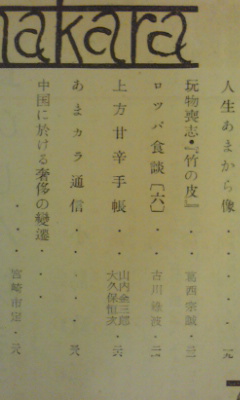 makara
人生あまから像・・・一九
玩物喪志・『竹の皮』・・葛西宗誠・三
ロッパ食談〔六〕・・古川緑波・三
上方甘辛手帳・・山内金三郎 大久保恒次・
あまカラ通信・・・
中国に於ける奢侈の變遷・・・宮崎市定・